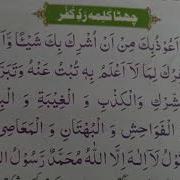 چھٹا کلمہ رَدِّ کُفر
اَعُوْذُ بِكَ مِنْ اَنْ اُشْرِكَ بِكَ شَيْئًا وَّاَ
فِرُكَ لِمَا لَا اَعْلَمُ بِهٖ تُبْتُ عَنْهُ وَتَبَرَّ
شِّرْكِ وَالْكِذْبِ وَ الْغِيْبَةِ وَ الْبِ
الْفَوَاحِشِ وَ الْبُهْتَانِ وَ الْمَعَاصِيْ
لُ لَآ اِلٰهَ اِلَّا اللّٰهُ مُحَمَّدٌ رَّسُوْلُ ال